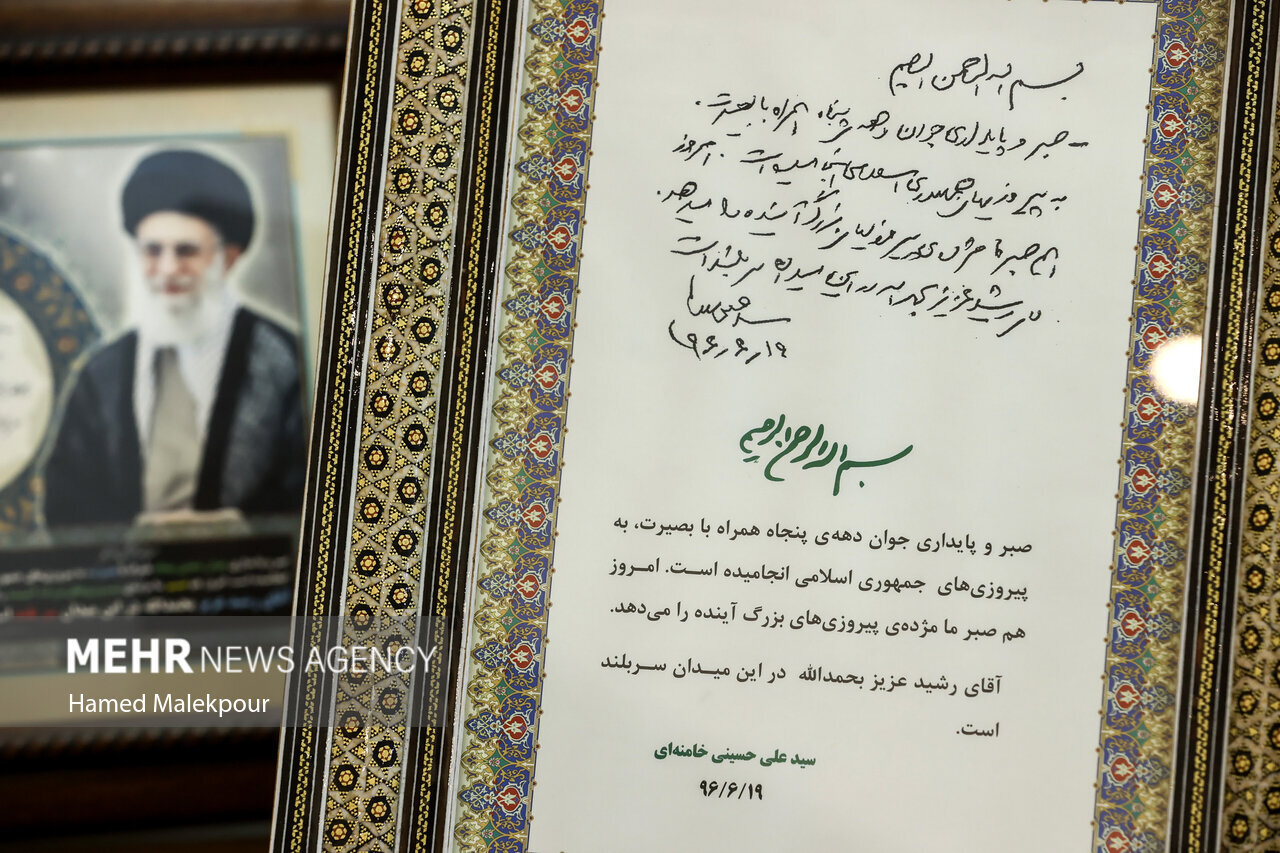 بسم الله الرحمن الرحیم
- صبر و پایداری جوان دهه ی پنجاه همراه با بصیرت،
به پیروزیهای جمهوری اسلامی انجامیده است. امروز
هم صبر ما مژده‌ی پیروزیهای بزرگ آینده را میدهد.
آقای رشید عزیز بحمدالله در این میدان سربلند است
۹۶٫۶٫۱۹
بسم الله الرحمن الرحیم
صبر و پایداری جوان دهه‌ی پنجاه همراه با بصیرت، به
پیروزی‌های جمهوری اسلامی انجامیده است. امـروز
هم صبر ما مژده‌ی پیروزی‌های بزرگ آینده را می‌دهد.
آقای رشید عزیز بحمدالله در این میـدان سـربلند
است.
سید علی حسینی خامنه‌ای
۹۶/۶/۱۹
MEHR NEWS AGENCY
Hamed Malekpour